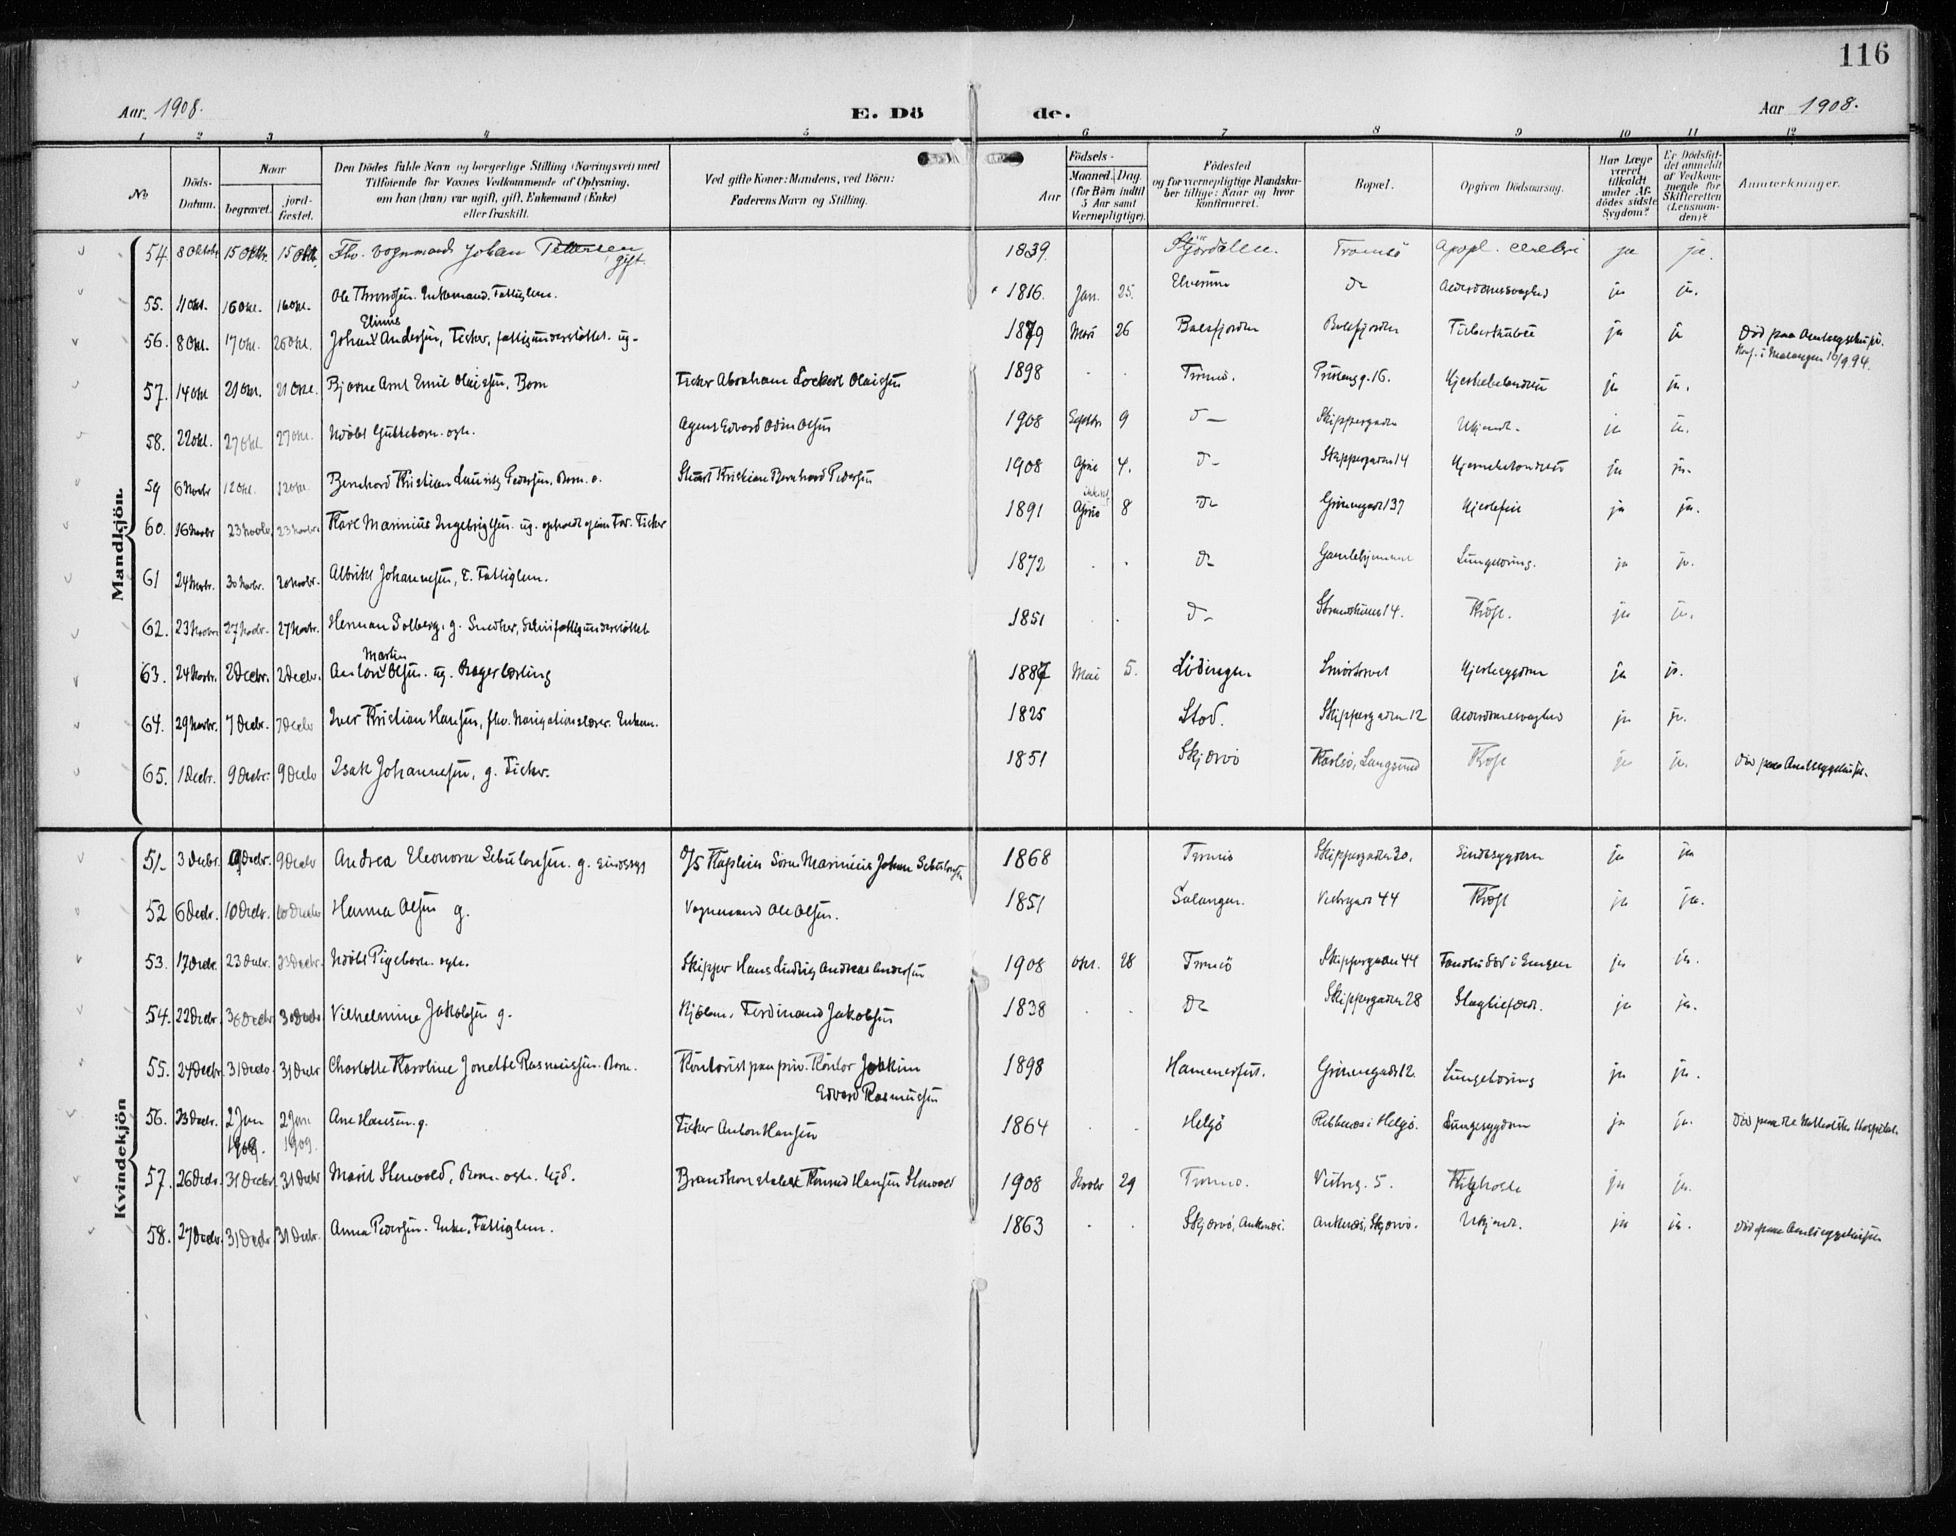 116
Aar 1908. E. Dö de. Aar 1908.
1 2 3 4 5 6 7 8 9 10 11 12
No
Döds-Datum.
Naar
begravet.
jord-fæstet.
Den Dödes fulde Navn og borgerlige Stilling (Næringsvei) med
Tilföiende for Voxnes Vedkommende af Oplysning,
om han (hun) var ugift, gift, Enkemand (Enke)
eller fraskilt.
Ved gifte Koner: Mandens, ved Börn:
Faderens Navn og Stilling.
Födsels-
Aar
Maaned. Dag.
(for Börn indtil
5 Aar samt
Værnepligtige).
Födested
og for værnepligtige Mandska-
ber tillige: Naar og hvor
konfirmeret.
Bopæl.
Opgiven Dödsaarsag.
Har Læge
været
tilkaldt
under Af-
dödes sidste
Sygdom?
Er Dödsfal-
det anmeldt
af Vedkom-
mende for
Skifteretten
(Lensman-
den)?
Anmerkninger.
Mandkjön.
54. 8 Oktobr 15 Oktbr. 15 Oktb. Fhv. vognmand Johan Petersen gift. 1839. Stjördalen. Tromsö apopl. cerebri ja ja.
55. 11 Okt. 16 Okt. 16 Okt. Ole Throndsen. Enkemand. Fattiglem. 1816. Jan. 25. Elverum do Alderdomssvaghed ja ja.
Elinus
56. 8 Okt. 17 Okt. 26 Okt. Johan Andersen, Fisker, fattigunderstöttet. ug. 1879 26 Balsfjorden Balsfjorden Tuberkulose ja ja Död paa Amtssygehuset.
Konf. i Malangen 16/9 94.
57. 14 Okt 21 Okt. 21 Okt. Bjarne Arnt Emil Olaissen, Barn Fisker Abraham Lockert Olaissen 1898 Tromsö. g. 16. Hjernebetændelse ja ja.
58. 22 Okt. 27 Okt. 27 Okt. Nödöbt Guttebarn. egte. Agent Edvard Odin Olsen 1908 Septbr 9 do Skippergaden Ukjendt. ja ja.
59 6 Novbr 12 Okt. 12 Okt. Bernhard Kristian Lauritz Pedersen. Barn. Kristian Bernhard Pedersen 1908 April 4. do Skippergaden 14 Hjernebetændelse ja ja.
60. 16 Novbr 23 Novbr. 23 Novbr. Karl Marinius Ingebrigtsen. ug. Fisker 1891 April 8 do Grönnegade 137 Hjertefeil ja ja.
61 24 Novbr. 30 Novbr. 30 Novbr. Albrikt Johannesen, Fattiglem. 1872 do Gamlehjemmet Lungetæring. ja ja.
62. 23 Novbr. 27 Novbr. 27 Novbr. Herman Solberg. g. Snedker, fattigunderstöttet 1851 do 14. Kræft. ja ja.
Martin
63. 24 Novbr. 2 Decbr. 2 Decbr. Anton Olsen. ug. Bagerlærling 1887 Mai 5. Lödingen Hjertesygdom ja ja.
64. 29 Novbr. 7 Decbr. 7 Decbr Iver Kristian Hansen, fhv. Navigationslærer. Enkem. 1825 Stod. Skippergaden 12 Alderdomssvaghed ja ja.
65. 1 Decbr. 9 Decbr. 9 Decbr Isak Johannesen, g. Fisker. 1851 Skjervö Karlsö, Langsund Kræft ja ja. Död paa Amtssygehuset.
Kvindekjön
51. 3 Decbr. 9 Decbr. 9 Decbr Andrea Eleonora Sebulonsen. g. sindssyg Sören Marinius Johan Sebulonsen 1868 Tromsö Skippergaden 30. Sindssygdom ja ja
52 6 Decbr. 10 Decbr. 10 Decbr Hanna Olsen g. Vognmand Ole Olsen. 1851 Salangen. Vestregade 44 Kræft ja ja.
53. 17 Decbr. 23 Decbr. 23 Decbr. Nödöbt Pigebarn. egte. Skipper Hans Ludvig Andreas Andersen 1908 Okt. 28 Tromsö Skippergaden 44 Fundet död i Sengen ja ja.
54. 22 Decbr. 30 Decbr 30 Decbr Vilhelmine Jakobsen g. Kjöbm. Ferdinand Jakobsen 1838 do Skippergaden 28 Slagtilfælde. ja ja.
55. 24 Decbr. 31 Decbr. 31 Decbr Charlotte Karoline Jonette Rasmussen. Barn. Kontorist paa priv. Kontor Joakim
Edvard Rasmussen 1898 Hammerfest. Grönnegade 12. Lungetæring ja ja.
56. 23 Decbr. 2 Jan 1909. 2 Jan 1909. Ane Hansen. g. Fisker Anton Hansen 1864 Helgö i Helgö. Lungesygdom ja ja. Död paa det katholske Hospital.
57. 26 Decbr. 31 Decbr. 31 Decbr Marit Stenvold, Barn. egte. Brandkonstabel Konrad Hansen Stenvold 1908 Novbr 29 Tromsö. Vestreg. 5. Kighoste ja ja.
58. 27 Decbr. 31 Decbr. 31 Decbr. Anna Pedersen. Enke. Fattiglem. 1863 Skjervö, Auknes. Auknes, Skjervö. Ukjendt. ja ja. Död paa Amtssygehuset